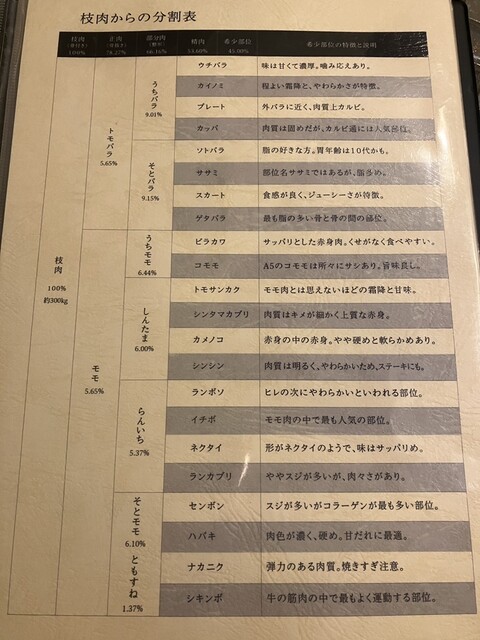 枝肉からの分割表
枝肉 正肉 部分肉 精肉 希少部位 希少部位の特徴と説明
(骨付き) (骨抜き)
100% 45.00%
枝肉
100%
約300kg
トモバラ
5.65%
うちバラ
9.01%
ウチバラ 味は甘くて濃厚。噛み応えあり。
カイノミ 程よい霜降と、やわらかさが特徴。
プレート 外バラに近く、肉質上カルビ。
カッパ 肉質は固めだが、カルビ通には人気部位。
そとバラ
9.15%
ソトバラ 脂の好きな方。胃年齢は10代かも。
ササミ 部位名ササミではあるが、脂多め。
スカート 食感が良く、ジューシーさが特徴。
ゲタバラ 最も脂の多い骨と骨の間の部位。
モモ
5.65%
うちモモ
6.44%
ヒラカワ サッパリとした赤身肉。くせがなく食べやすい。
コモモ A5のコモモは所々にサシあり。旨味良し。
しんたま
6.00%
トモサンカク モモ肉とは思えないほどの霜降と甘味。
シンタマカブリ 肉質はキメが細かく上質な赤身。
カメノコ 赤身の中の赤身。やや硬めと軟らかめあり。
シンシン 肉質は明るく、やわらかいため、ステーキにも。
らんいち
5.37%
ランボソ ヒレの次にやわらかいといわれる部位。
イチボ モモ肉の中で最も人気の部位。
ネクタイ 形がネクタイのようで、味はサッパリめ。
ランカブリ ややスジが多いが、肉々さがあり。
そとモモ
6.10%
センボン スジが多いがコラーゲンが最も多い部位。
ハバキ 肉色が濃く、硬め。甘だれに最適。
ともすね
1.37%
ナカニク 弾力のある肉質。焼きすぎ注意。
シキンボ 牛の筋肉の中で最もよく運動する部位。